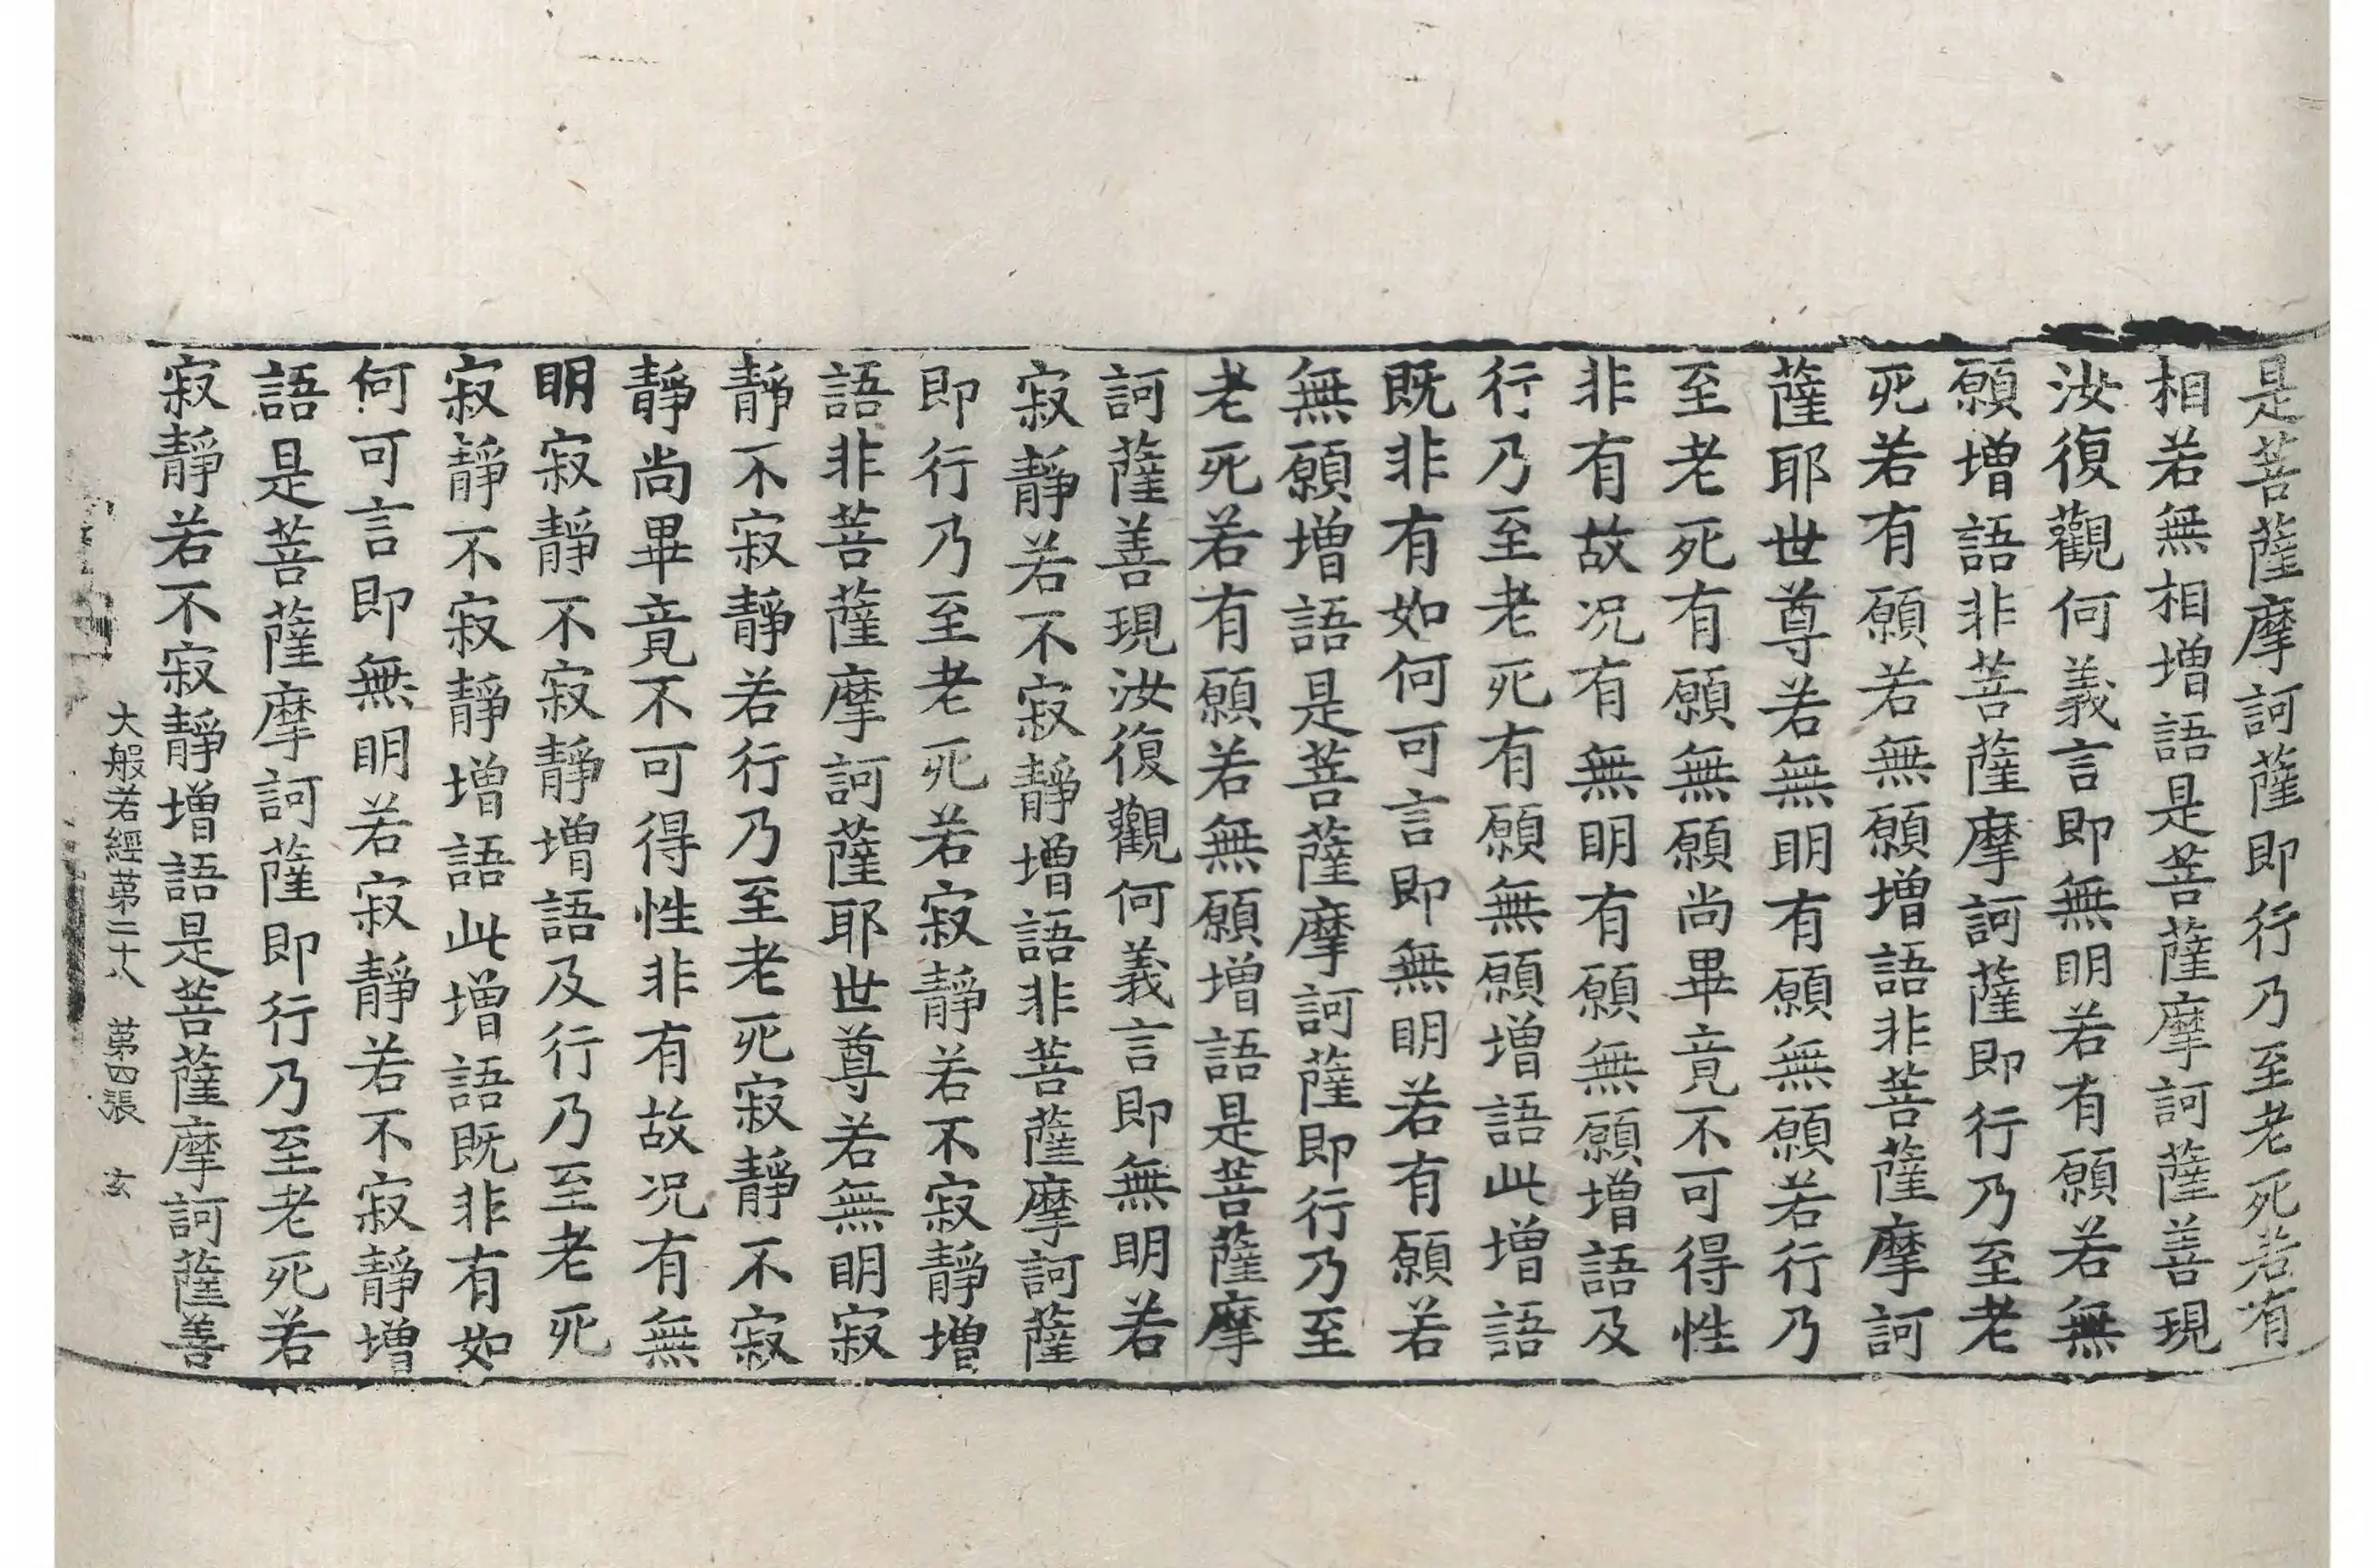 是菩薩摩訶薩即行乃至老死若有
相若無相增語是菩薩摩訶薩善現
汝復觀何義言即無明若有願若無
願增語非菩薩摩訶薩即行乃至老
死若有願若無願增語非菩薩摩訶
薩耶世尊若無明有願無願若行乃
至老死有願無願尚畢竟不可得性
非有故況有無明有願無願增語及
行乃至老死有願無願增語此增語
既非有如何可言即無明若有願若
無願增語是菩薩摩訶薩即行乃至
老死若有願若無願增語是菩薩摩
訶薩善現汝復觀何義言即無明若
寂靜若不寂靜增語非菩薩摩訶薩
即行乃至老死若寂靜若不寂靜增
語非菩薩摩訶薩耶世尊若無明寂
靜不寂靜若行乃至老死寂靜不寂
靜尚畢竟不可得性非有故況有無
明寂靜不寂靜增語及行乃至老死
寂靜不寂靜增語此增語既非有如
何可言即無明若寂靜若不寂靜增
語是菩薩摩訶薩即行乃至老死若
寂靜若不寂靜增語是菩薩摩訶薩善
大般若經第二十八 第四張 玄